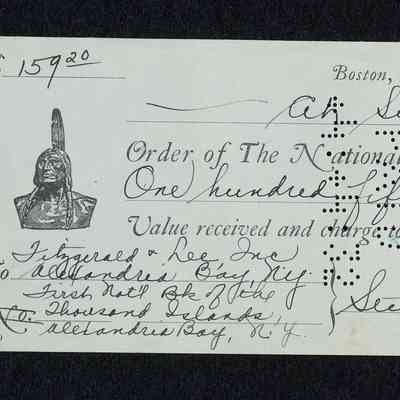 $ 159 20
Boston,
At
Order of The National
One hundred fif
Value received and charge to
Fitzgerald & Lee Inc
To Alexandria Bay, N.Y.
First Nat'l Bk of the
Thousand Islands,
Alexandria Bay, N.Y.